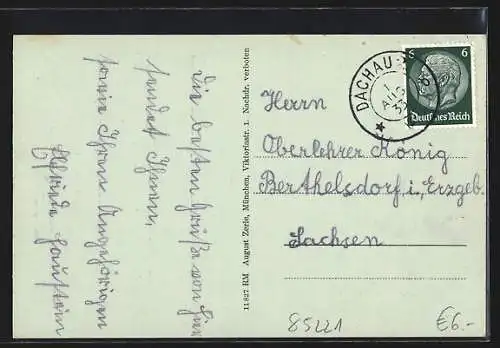 Die besten Grüße von hier
sendet Ihnen,
sowie Ihren Angehörigen
11827 RM August Zerle, München, Viktoriastr. 1. Nachdr. verboten
DACHAU
6
Deutsches Reich
Herrn
Oberlehrer König
Berthelsdorf i, Erzgeb.
Sachsen
85221
€6.-